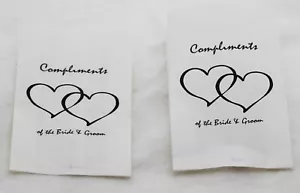 Compliments
of the Bride & Groom
Compliments
of the Bride & Groom